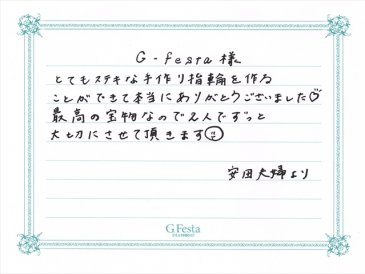 G-festa 様
とてもステキな手作り指輪を作る
ことができて本当にありがとうございました♡
最高の宝物なので2人でずっと
大切にさせて頂きます☺
安田夫婦より
G.Festa